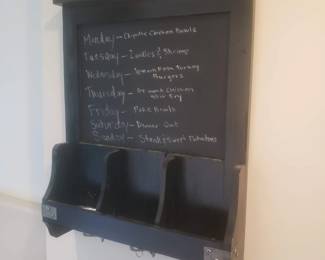 Monday - Chipotle Chicken Bowls
Tuesday - Zoodles & Shrimp
Wednesday - Spanakopita Turkey
Burgers
Thursday - Chicken
Stir Fry
Friday - Poke Bowls
Saturday - Dinner Out
Sunday - Steak & Sweet Potatoes